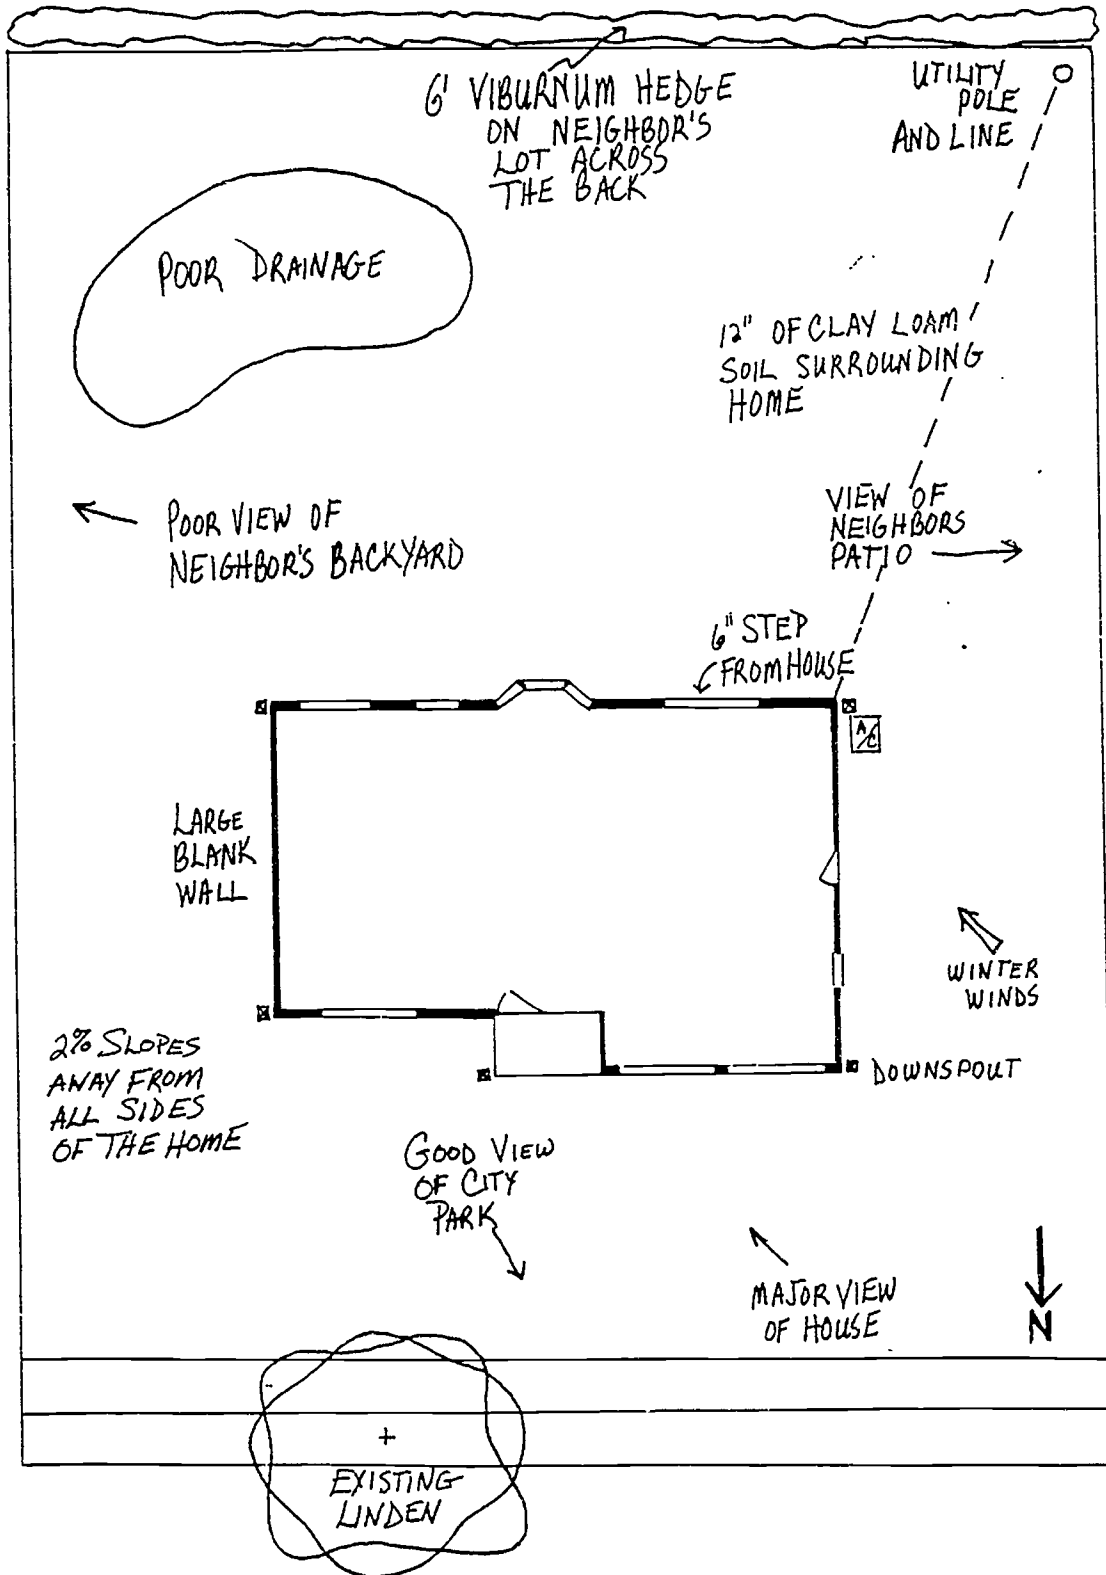 6' VIBURNUM HEDGE
ON NEIGHBOR'S
LOT ACROSS
THE BACK
UTILITY
POLE
AND LINE
POOR DRAINAGE
12" OF CLAY LOAM
SOIL SURROUNDING
HOME
POOR VIEW OF
NEIGHBOR'S BACKYARD
VIEW OF
NEIGHBORS
PATIO
6" STEP
FROM HOUSE
A/C
LARGE
BLANK
WALL
WINTER
WINDS
2% SLOPES
AWAY FROM
ALL SIDES
OF THE HOME
DOWNSPOUT
GOOD VIEW
OF CITY
PARK
MAJOR VIEW
OF HOUSE
N
EXISTING
LINDEN